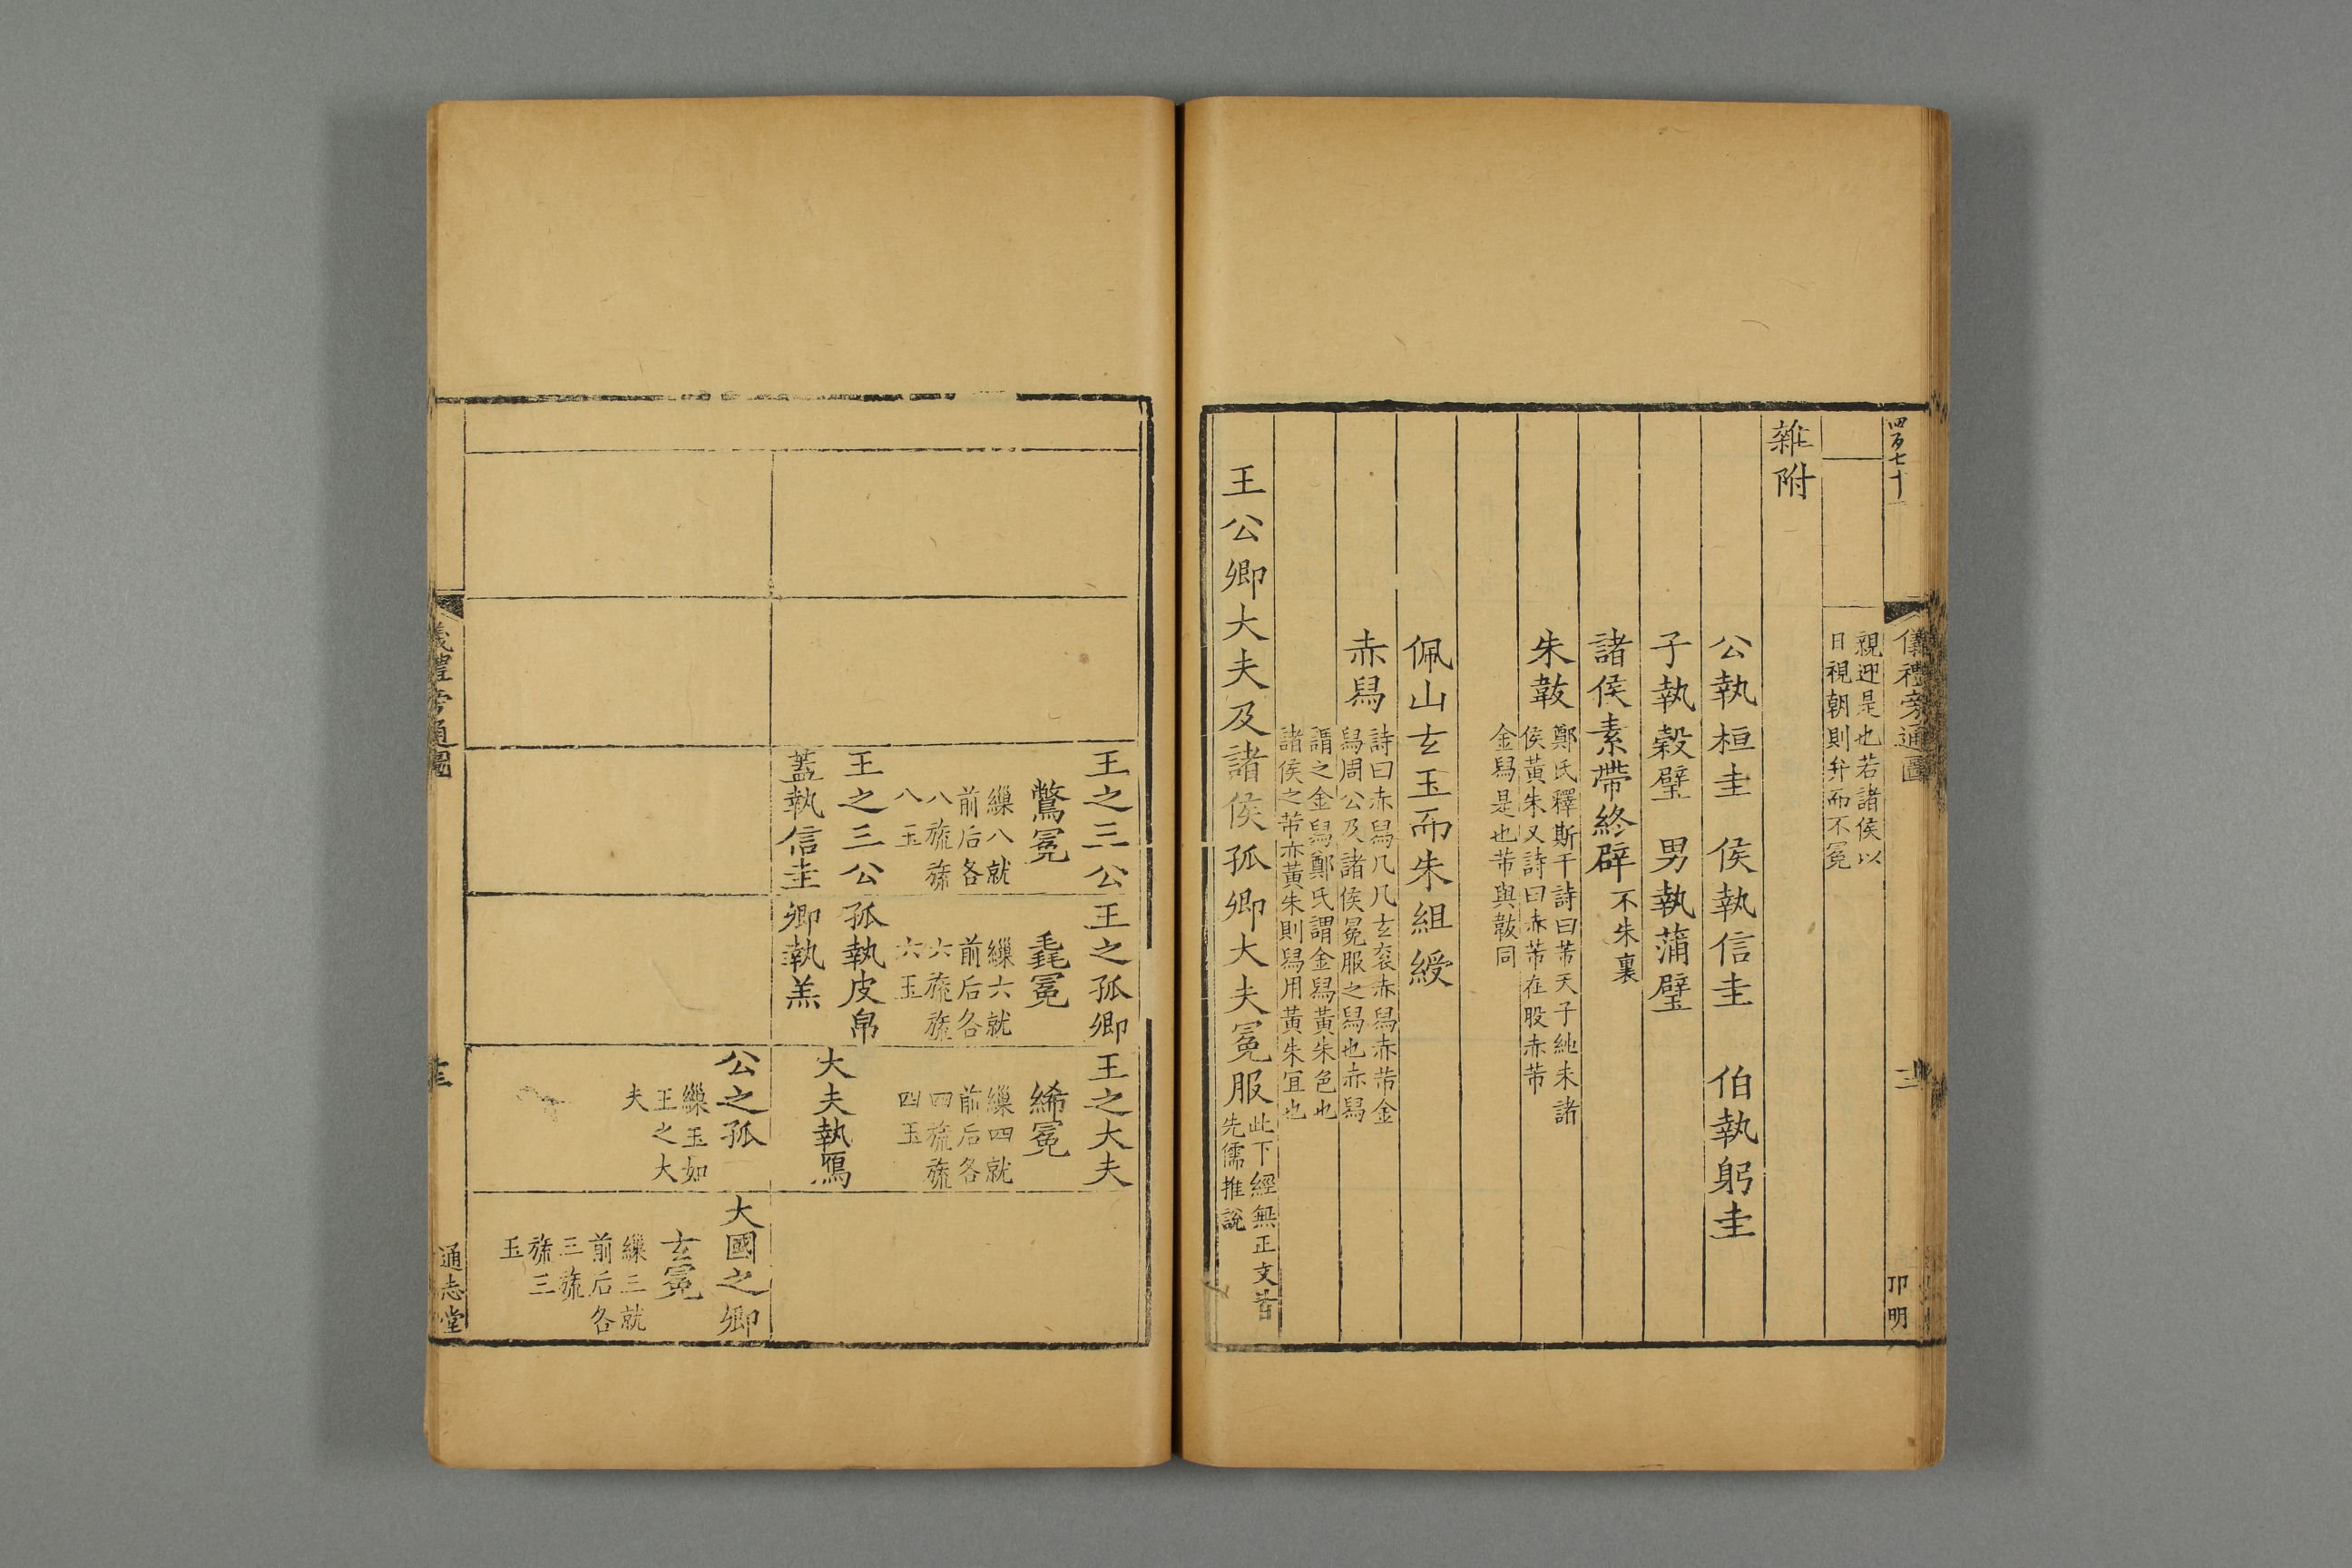 四百七十一
儀禮旁通圖
卭明
親迎是也若諸侯以
日視朝則弁而不冕
雜附
公執桓圭 侯執信圭 伯執躬圭
子執穀璧 男執蒲璧
諸侯素帶終辟不朱裏
朱韍
鄭氏釋斯干詩曰芾天子純朱諸
侯黃朱又詩曰赤芾在股赤芾
金舄是也芾與韍同
佩山玄玉而朱組綬
赤舄
詩曰赤舄几几玄衮赤舄赤芾金
舄周公及諸侯冕服之舄也赤舄
謂之金舄鄭氏謂金舄黃朱色也
諸侯之芾亦黃朱則舄用黃朱宜也
王公卿大夫及諸侯孤卿大夫冕服
此下經無正文皆
先儒推說
王之三公
鷩冕
繅八就
前后各
八旒旒
八玉
王之三公
蓋執信圭
王之孤卿
毳冕
繅六就
前后各
六旒旒
六玉
孤執皮帛
卿執羔
王之大夫
絺冕
繅四就
前后各
四旒旒
四玉
大夫執鴈
公之孤
繅玉如
王之大
夫
大國之卿
玄冕
繅三就
前后各
三旒
旒三
玉
儀禮旁通圖
通志堂